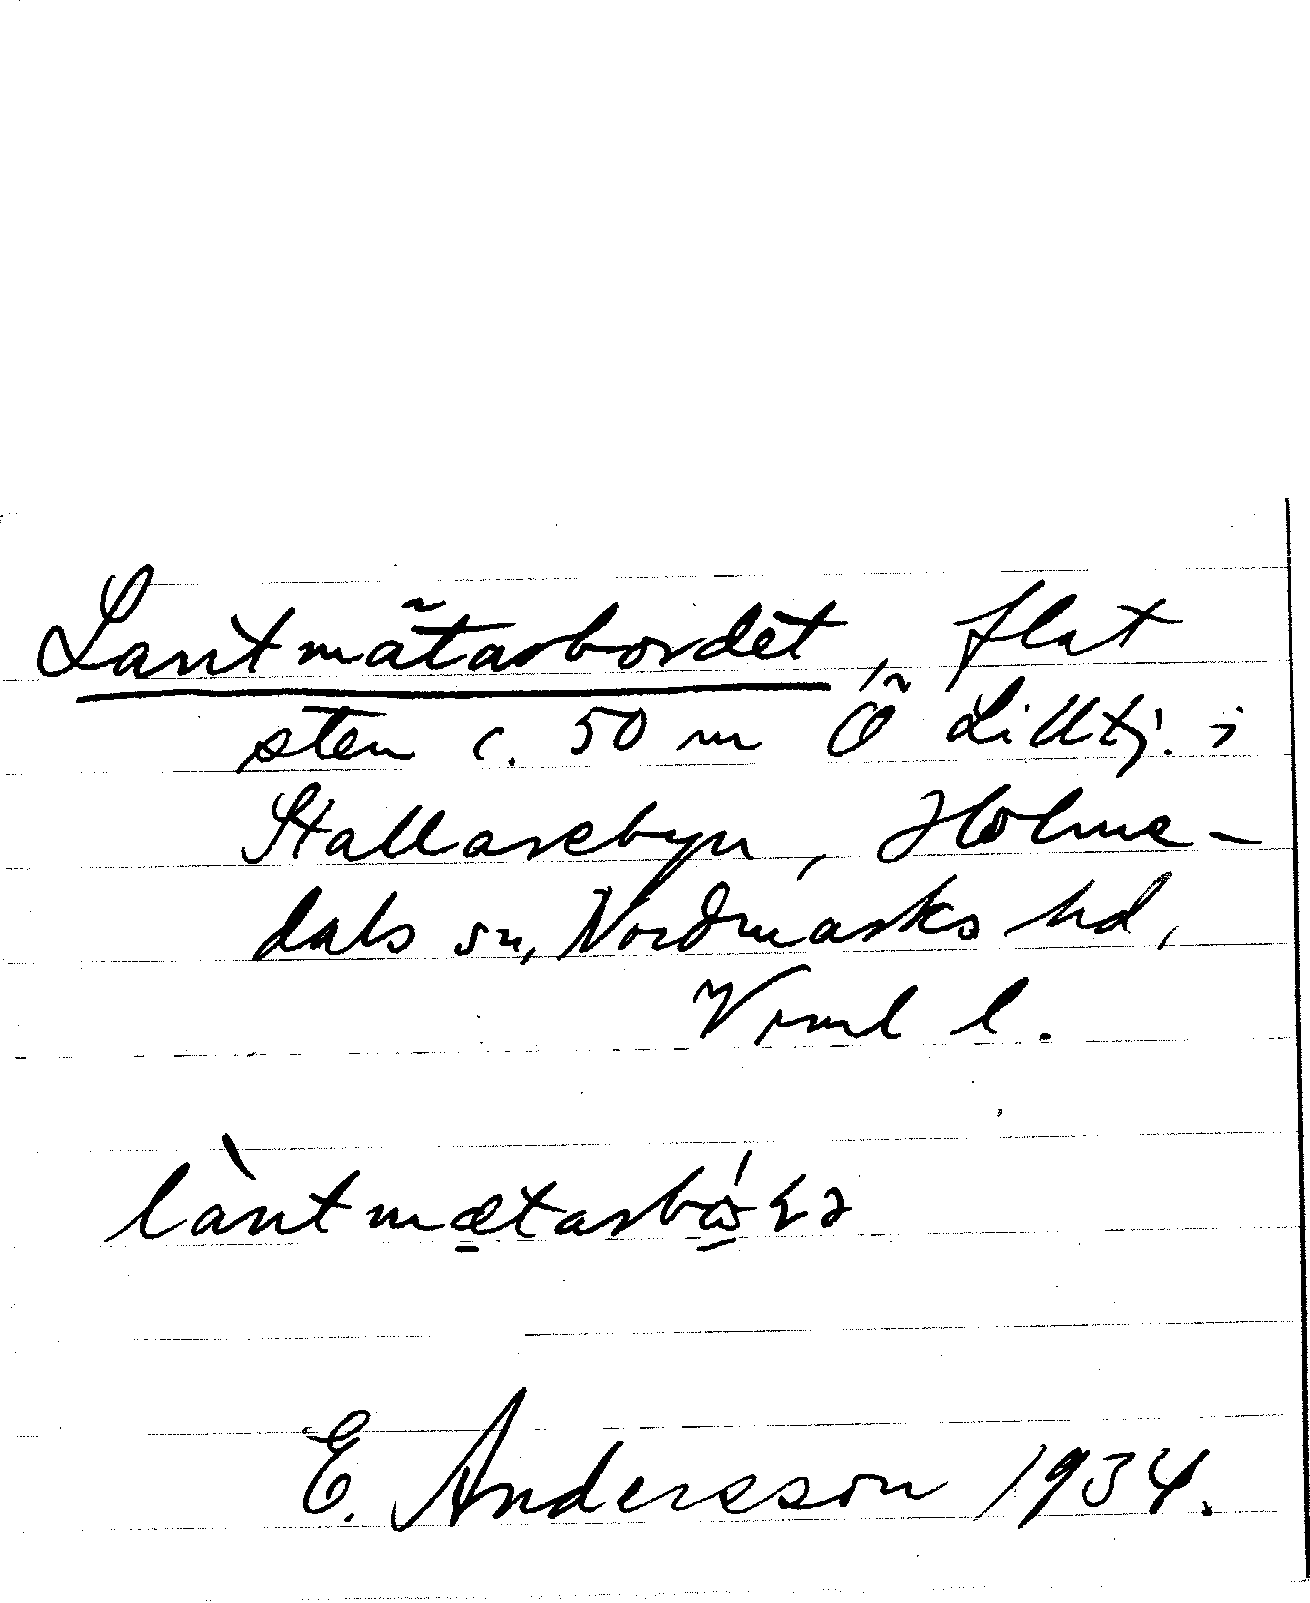 Lantmätarbordet, flat
sten c. 50 m Ö Lilltj. i
Stallarebyn, Holme-
dals sn, Nordmarks hd,
Vrml l.
E. Andersson 1934.